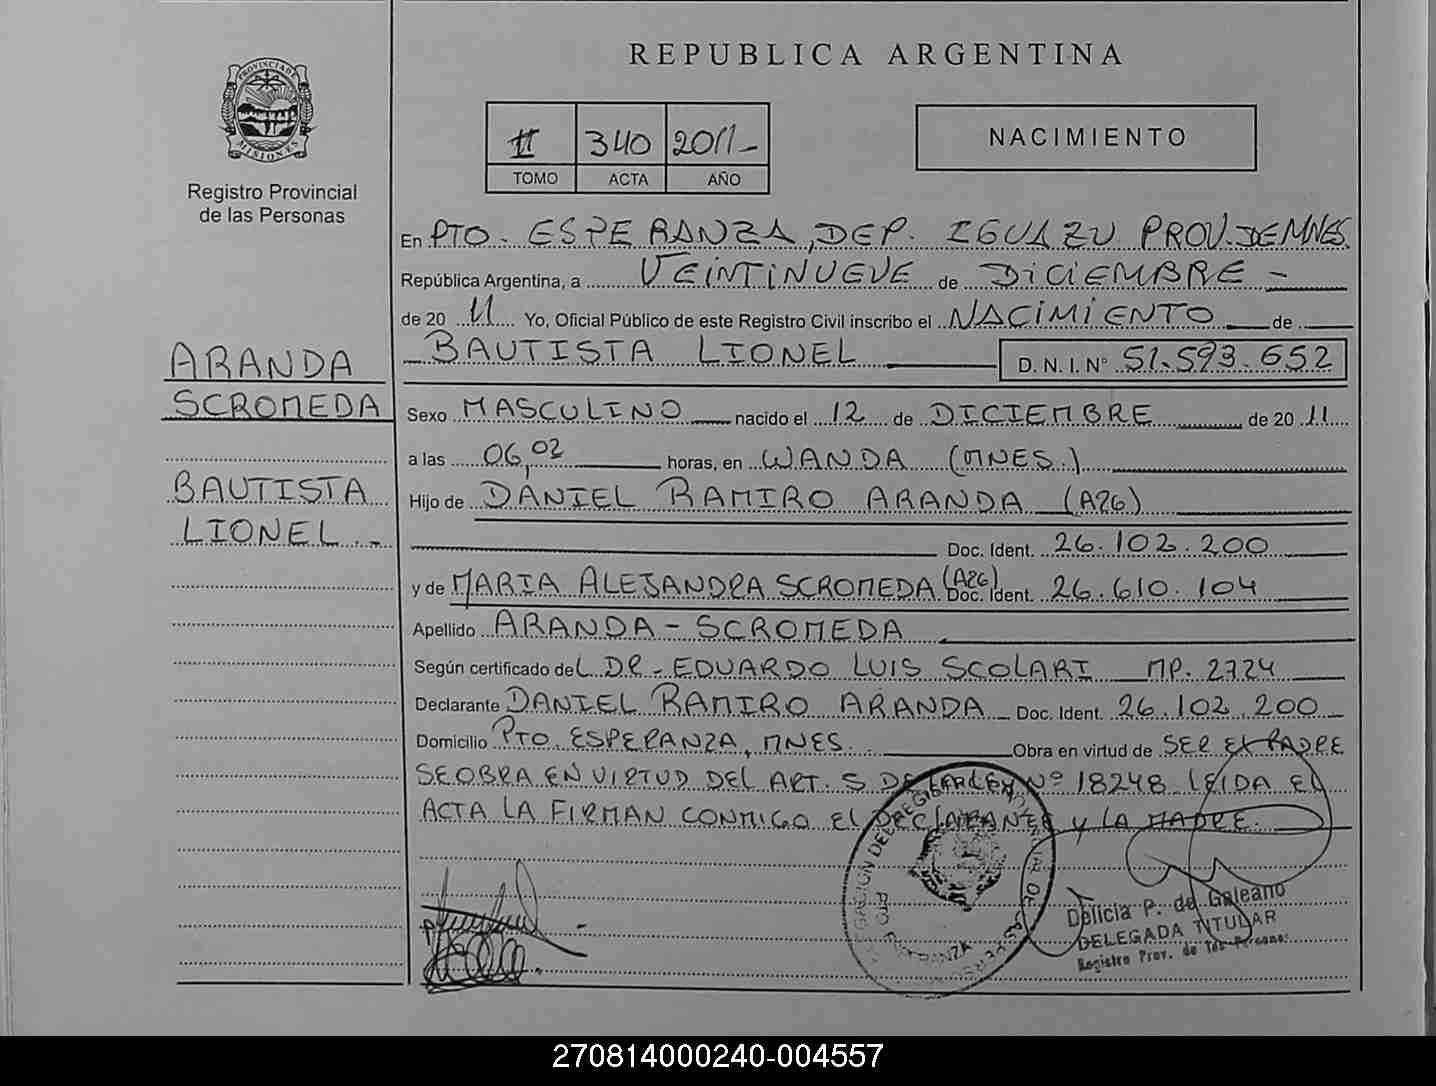 REPUBLICA ARGENTINA
PROVINCIA DE MISIONES
Registro Provincial
de las Personas
II 340 2011-
TOMO ACTA AÑO
NACIMIENTO
ARANDA
SCROMEDA
BAUTISTA
LIONEL.-
En PTO. ESPERANZA, DEP. IGUAZU PROV. DE MNES.
República Argentina, a VEINTINUEVE de DICIEMBRE -
de 20 11 Yo, Oficial Público de este Registro Civil inscribo el NACIMIENTO de
BAUTISTA LIONEL D. N. I. Nº 51.593.652
Sexo MASCULINO nacido el 12 de DICIEMBRE de 20 11
a las 06,02 horas, en WANDA (MNES.)
Hijo de DANIEL RAMIRO ARANDA (A26)
Doc. Ident. 26.102.200
y de MARIA ALEJANDRA SCROMEDA (A26) Doc. Ident. 26.610.104
Apellido ARANDA - SCROMEDA
Según certificado del DR. EDUARDO LUIS SCOLARI MP. 2724
Declarante DANIEL RAMIRO ARANDA Doc. Ident. 26.102.200
Domicilio PTO. ESPERANZA, MNES. Obra en virtud de SER EL PADRE
SE OBRA EN VIRTUD DEL ART. 5 DE LA LEY Nº 18248 LEIDA EL
ACTA LA FIRMAN CONMIGO EL DECLARANTE Y LA MADRE.
DELEGACION DEL REGISTRO
PTO ESPERANZA
Delicia P. de Galeano
DELEGADA TITULAR
Registro Prov. de las Personas
270814000240-004557